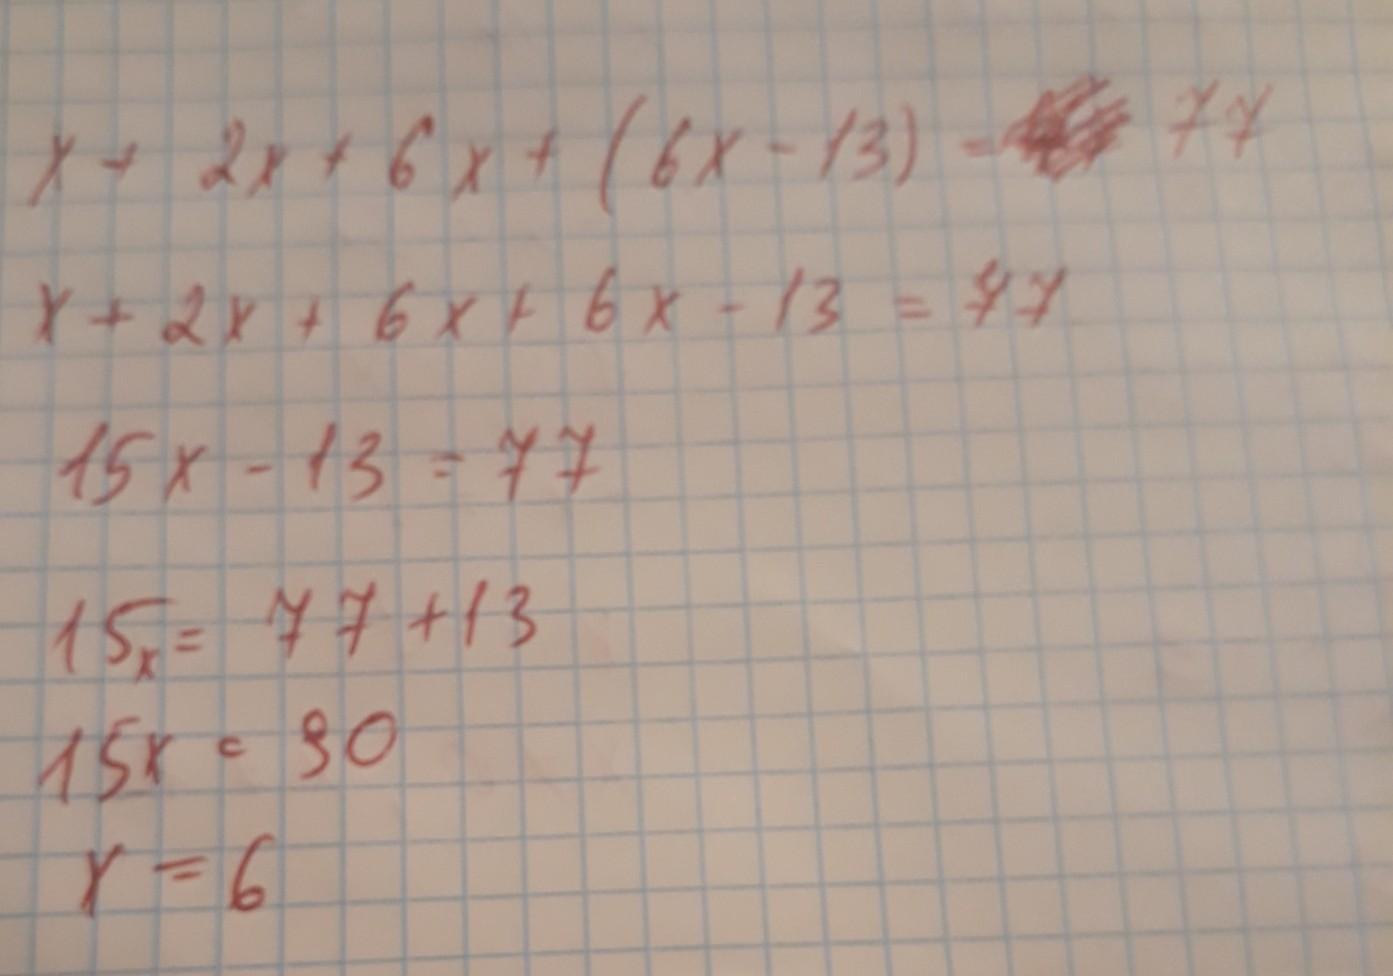 x + 2x + 6x + (6x - 13) = 77
x + 2x + 6x + 6x - 13 = 77
15x - 13 = 77
15x = 77 + 13
15x = 90
x = 6